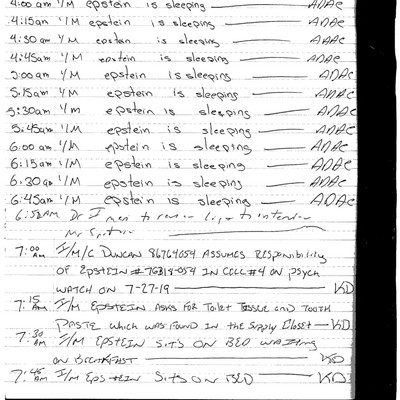 4:00 am I/M epstein is sleeping — ADAC
4:15am I/M epstein is sleeping — ADAC
4:30 am I/M epstein is sleeping — ADAC
4:45am I/M epstein is sleeping — ADAC
5:00am I/M epstein is sleeping — ADAC
5:15am I/M epstein is sleeping — ADAC
5:30am I/M epstein is sleeping — ADAC
5:45am I/M epstein is sleeping — ADAC
6:00 am I/M epstein is sleeping — ADAC
6:15am I/M epstein is sleeping — ADAC
6:30am I/M epstein is sleeping — ADAC
6:45am I/M epstein is sleeping — ADAC
6:50AM to
Mr
7:00 AM I/M/C DUNCAN 86764054 ASSUMES RESPONSIBILITY
OF EPSTEIN #76318-054 IN CELL #4 ON PSYCH
WATCH ON 7-27-19 — KD
7:15 AM I/M EPSTEIN ASKS FOR TOILET TISSUE and TOOTH
PASTE which WAS FOUND IN the SUPPLY CLOSET — KD
7:30 AM I/M EPSTEIN SITS ON BED WAITING
ON BREAKFAST — KD
7:45 AM I/M EPSTEIN SITS ON BED — KD